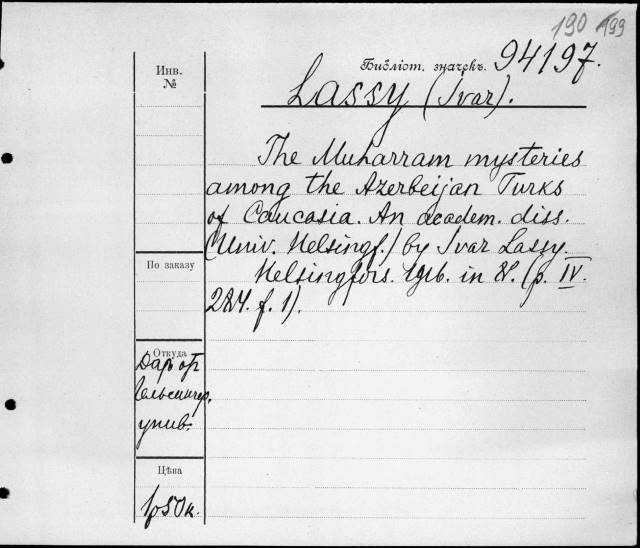 190 199
Инв.
№
Библіот. значекъ. 94197.
Lassy (Ivar).
The Muharram mysteries
among the Azerbeijan Turks
of Caucasia. An academ. diss.
(Univ. Helsingf.) by Ivar Lassy.
Helsingfors. 1916. in 8°. (p. IV.
284. f. 1).
По заказу
Откуда
Даръ от
Гельсингф.
унив.
Цѣна
1р 50к.